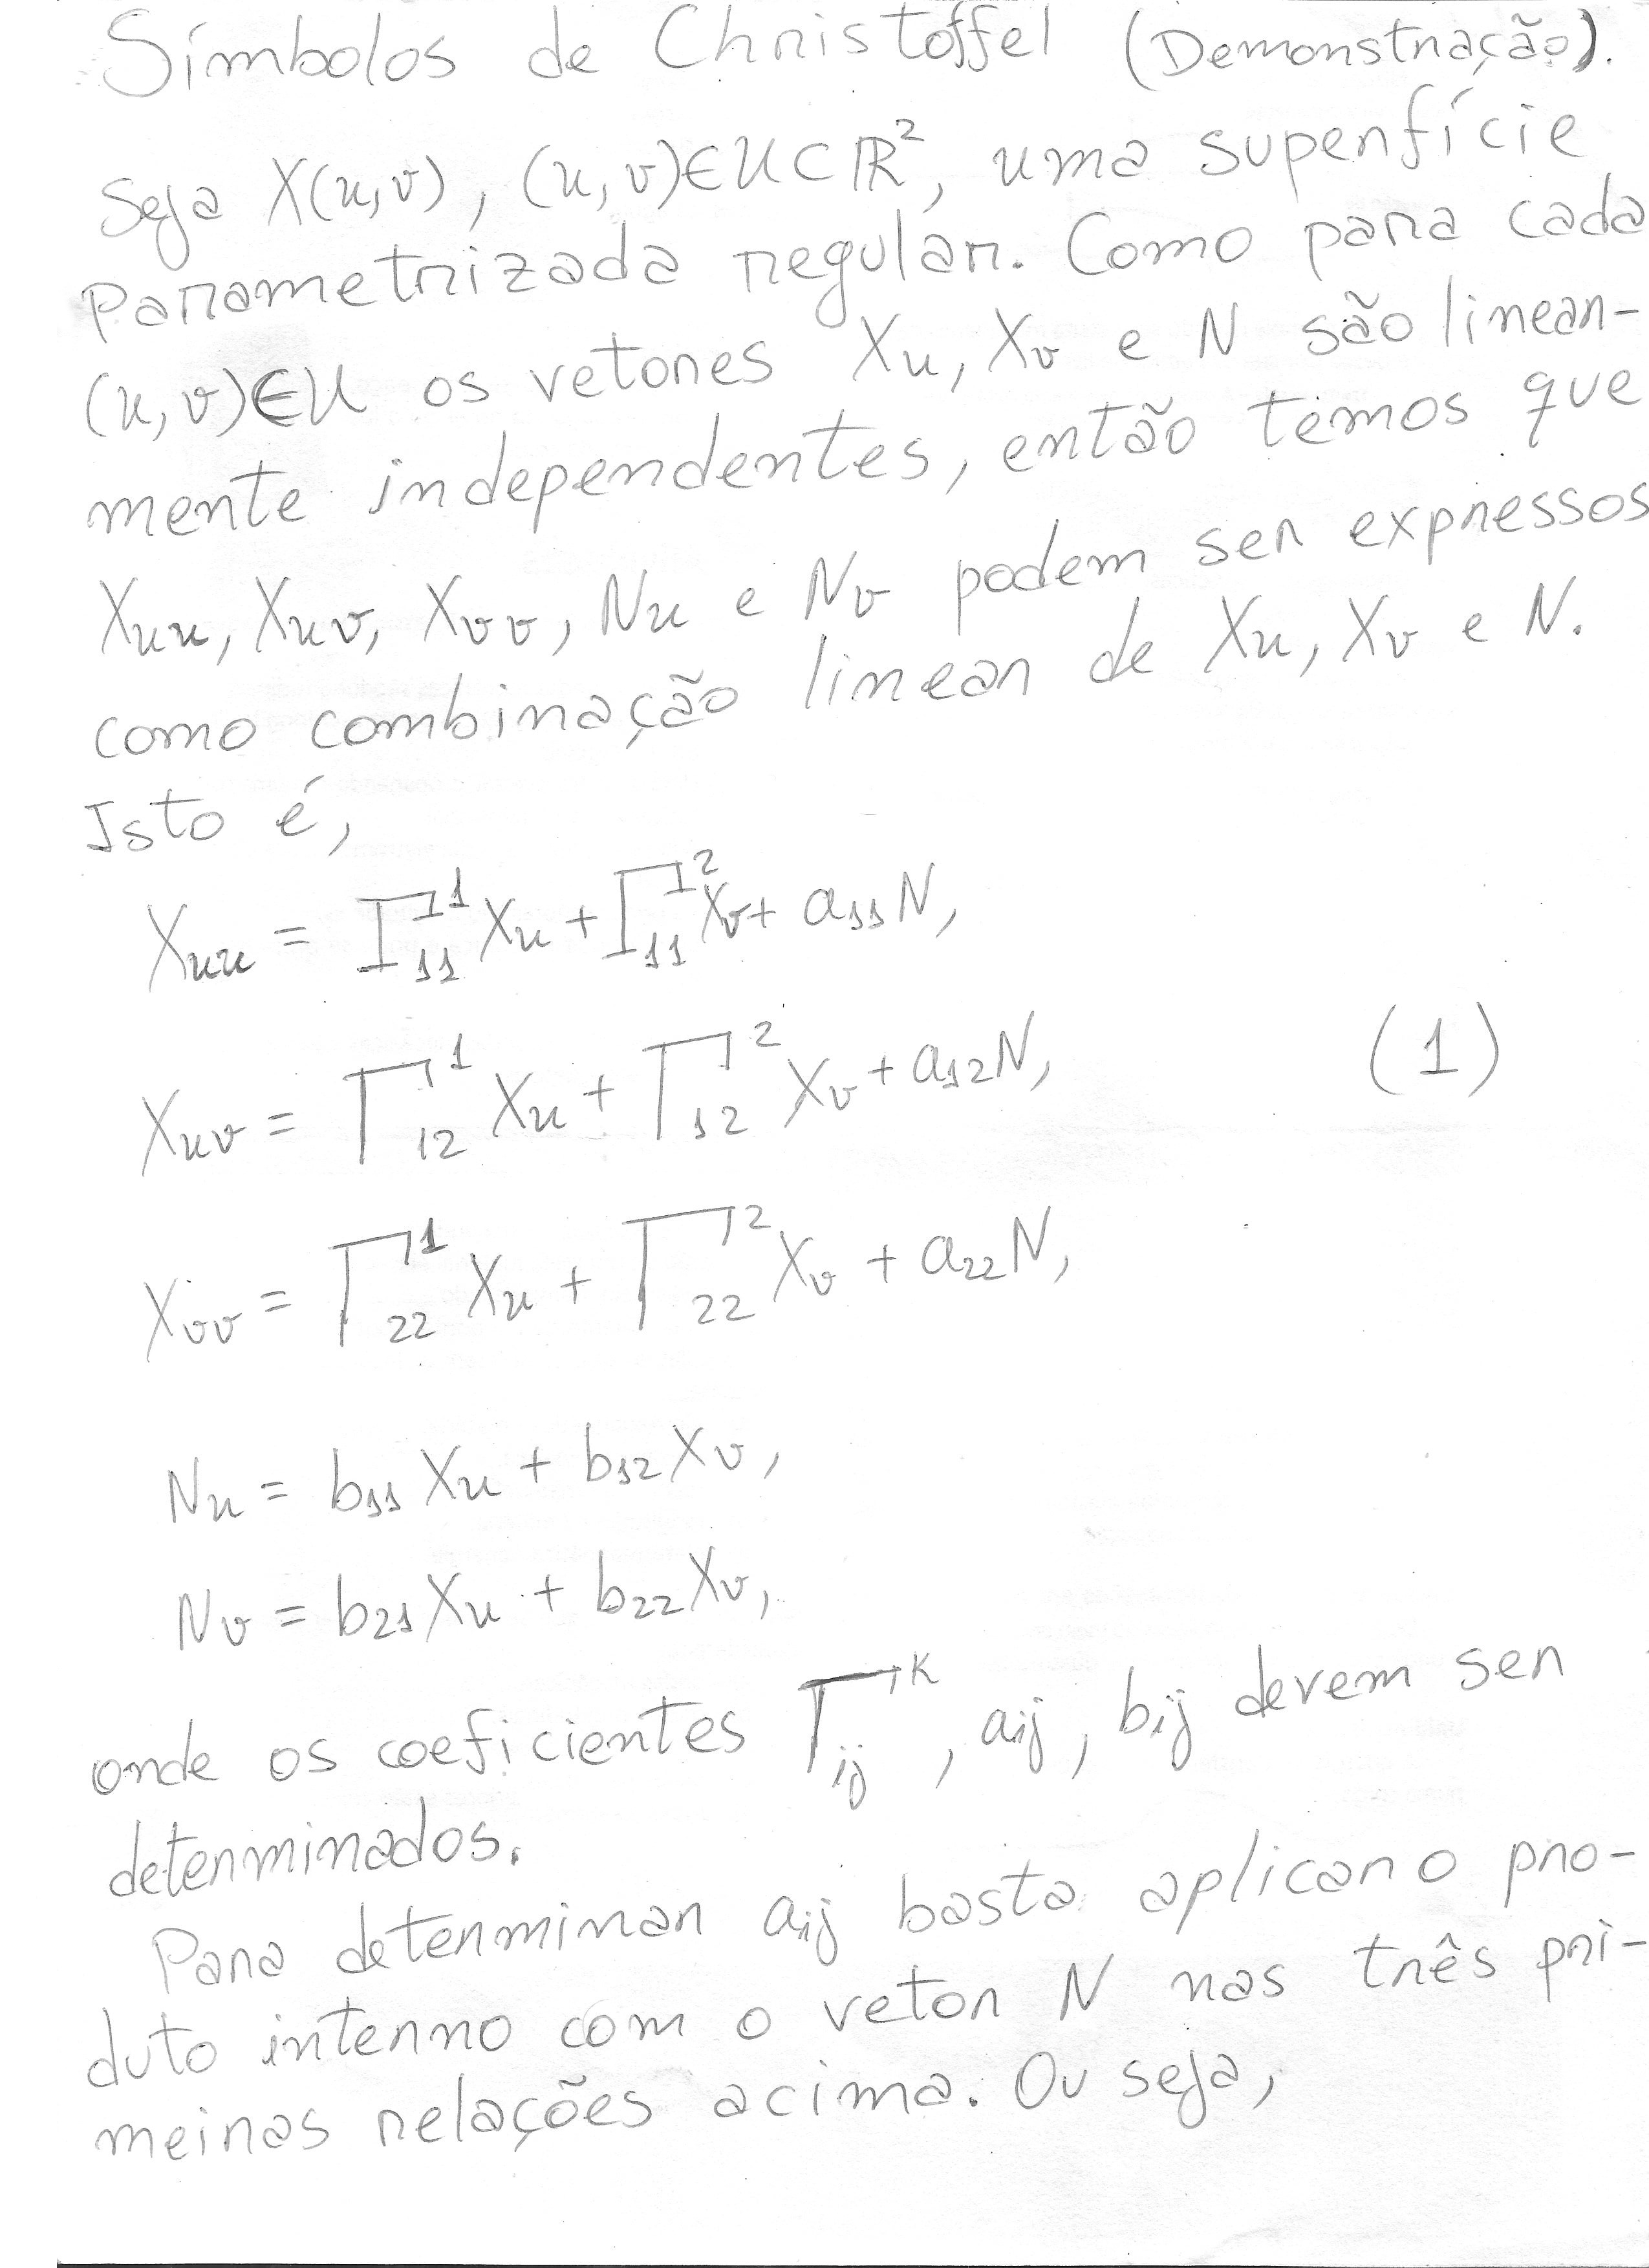 Símbolos de Christoffel (Demonstração).
Seja X(u,v), (u,v)∈U⊂ℝ², uma superfície
parametrizada regular. Como para cada
(u,v)∈U os vetores Xu, Xv e N são linear-
mente independentes, então temos que
Xuu, Xuv, Xvv, Nu e Nv podem ser expressos
como combinação linear de Xu, Xv e N.
Isto é,
Xuu = Γ¹₁₁ Xu + Γ²₁₁ Xv + a₁₁N,
Xuv = Γ¹₁₂ Xu + Γ²₁₂ Xv + a₁₂N, (1)
Xvv = Γ¹₂₂ Xu + Γ²₂₂ Xv + a₂₂N,
Nu = b₁₁Xu + b₁₂Xv,
Nv = b₂₁Xu + b₂₂Xv,
onde os coeficientes Γᵏᵢⱼ, aij, bij devem ser
determinados.
Para determinar aij basta aplicar o pro-
duto interno com o vetor N nas três pri-
meiras relações acima. Ou seja,